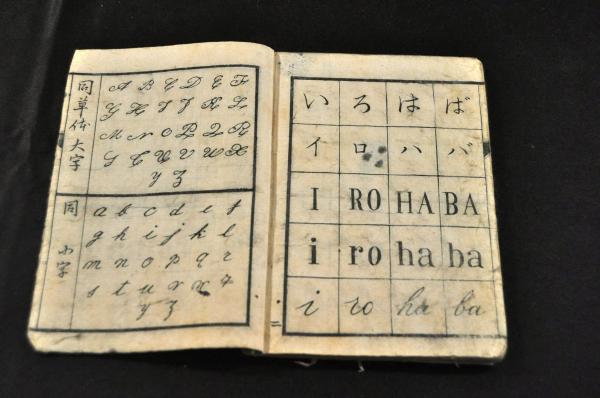 同草体大字
A B C D E F
G H I J K L
M N O P Q R
S T U V W X
Y Z
同小字
a b c d e f
g h i j k l
m n o p q r
s t u v w x
y z
い ろ は ば
イ ロ ハ バ
I RO HA BA
i ro ha ba
i ro ha ba